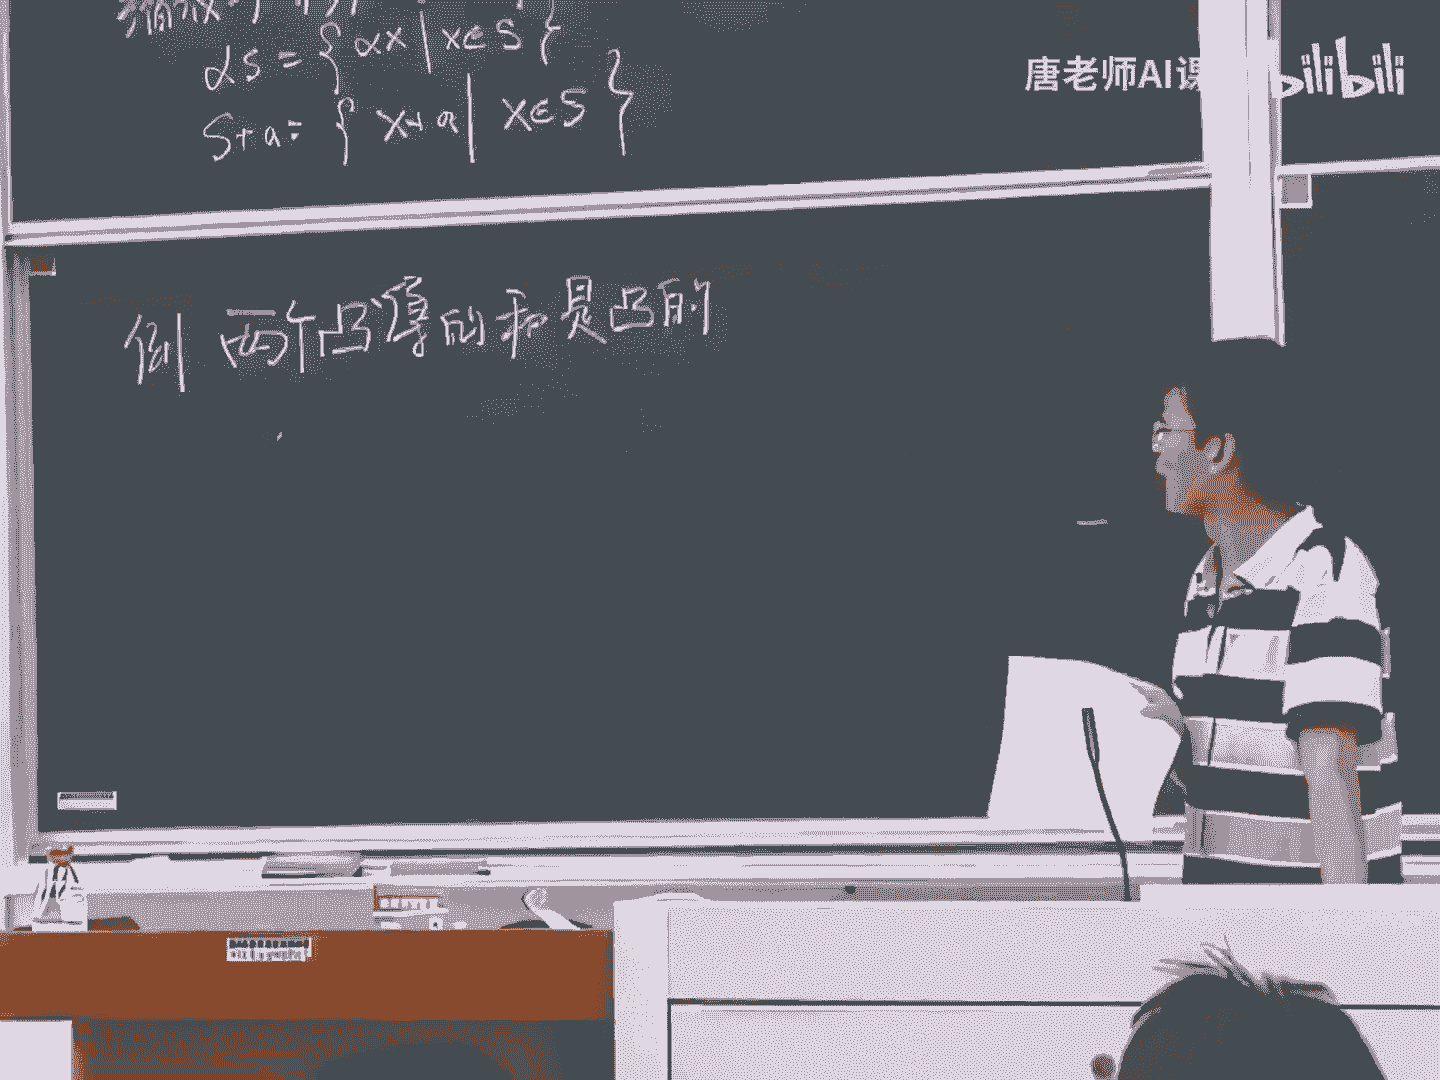 缩放与
αS = { αx | x∈S }
S+a = { x+a | x∈S }
唐老师AI课 bilibili
例 两个凸集的和是凸的